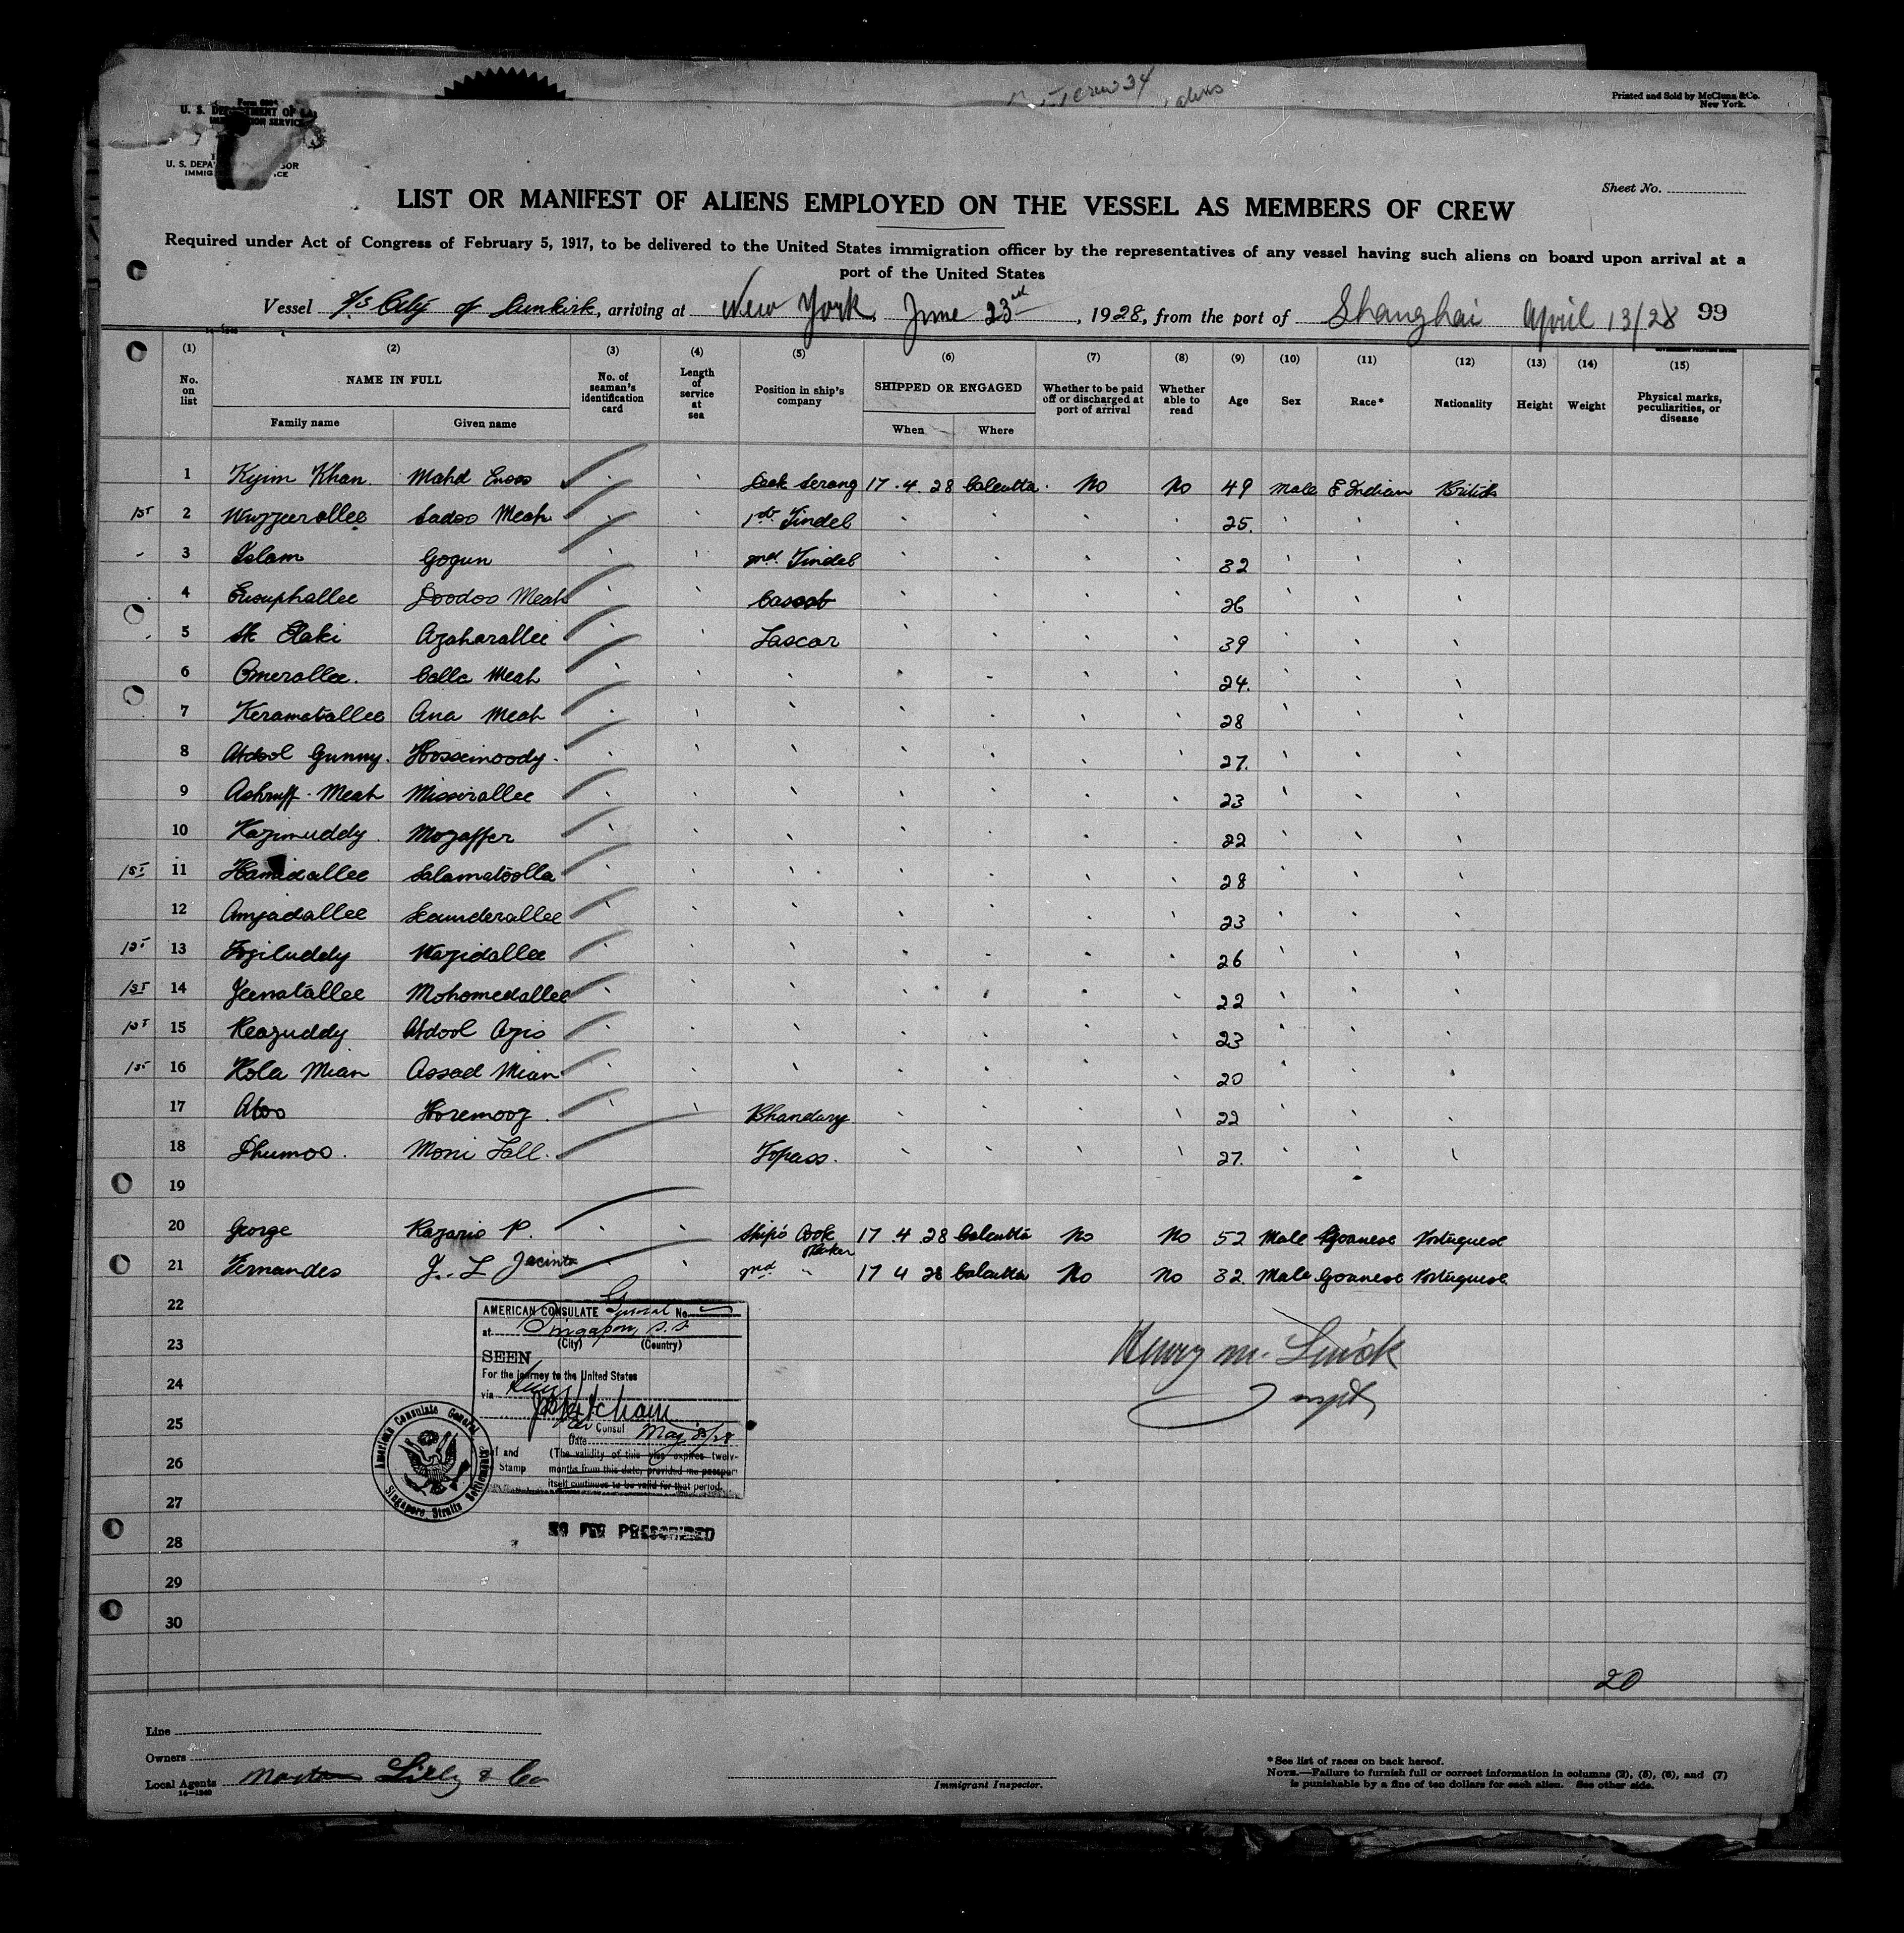 Crew 34
aliens
Printed and Sold by McClunn & Co.
New York.
U. S. DEPARTMENT OF
IMMIGRATION SERVICE
U. S. DEPA
IMMIG
Sheet No.
LIST OR MANIFEST OF ALIENS EMPLOYED ON THE VESSEL AS MEMBERS OF CREW
Required under Act of Congress of February 5, 1917, to be delivered to the United States immigration officer by the representatives of any vessel having such aliens on board upon arrival at a
port of the United States
Vessel S/S City of Dunkirk, arriving at New York, June 23rd, 1928, from the port of Shanghai April 13/28 99
(1) (2) (3) (4) (5) (6) (7) (8) (9) (10) (11) (12) (13) (14) (15)
No. on list NAME IN FULL No. of seaman's identification card Length of service at sea Position in ship's company SHIPPED OR ENGAGED Whether to be paid off or discharged at port of arrival Whether able to read Age Sex Race* Nationality Height Weight Physical marks, peculiarities, or disease
Family name Given name When Where
1 Kyim Khan Mahd Enoos Deck Serang 17.4.28 Calcutta No No 49 Male E Indian British
1st 2 Wuzzeerallee Sadoo Meah 1st Tindel 25
3 Islam Gogun 2nd Tindel 32
4 Eusuphallee Doodoo Meah Cassob 26
5 Sk Elaki Azaharallee Lascar 39
6 Omerallee Calla Meah 24
7 Keramatallee Ana Meah 28
8 Abdool Gunny Hosseinoody 27
9 Ashruff Meah Missirallee 23
10 Kazimuddy Mozaffer 22
1st 11 Hamidallee Salamatoolla 28
12 Amjadallee Scunderallee 23
1st 13 Foziluddy Wazidallee 26
1st 14 Jeenatallee Mohomedallee 22
1st 15 Reazuddy Abdool Azis 23
1st 16 Kola Mian Assad Mian 20
17 Aboo Horemooz Bhandary 22
18 Jhumoo Moni Lall Topass 27
19
20 George Razario P. Ship's Cook 17.4.28 Calcutta No No 52 Male Goanese Portuguese
Baker
21 Fernandes J. L Jacinto 2nd " 17 4 28 Calcutta No No 32 Male Goanese Portuguese
22
23
24
25
26
27
28
29
30
AMERICAN CONSULATE General No.
at Singapore, S.S.
(City) (Country)
SEEN
For the journey to the United States
via
Consul
Date May 8/28
(The validity of this visa expires twelve
months from this date, provided the passport
itself continues to be valid for that period.
and
Stamp
American Consulate General
Singapore Straits Settlements
NO FEE PRESCRIBED
Henry M.
20
Line
Owners
Local Agents Norton Lilly & Co
14—1240
Immigrant Inspector.
*See list of races on back hereof.
NOTE.—Failure to furnish full or correct information in columns (2), (5), (6), and (7)
is punishable by a fine of ten dollars for each alien. See other side.